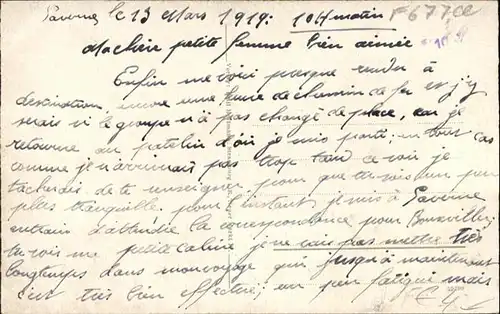 Saverne le 13 Mars 1919: 10H matin F677CL
Ma chère petite femme bien aimée
Enfin me voici presque rendu à
destination, encore une heure de chemin de fer et j'y
serais si le groupe n'a pas changé de place, car je
retourne au patelin d'où je suis parti; en tout cas
comme je n'arriverais pas trop tard ce soir je
tâcherais de te renseigner pour que tu sois un peu
plus tranquille. pour l'instant je suis à Saverne
entrain d'attendre la correspondance pour Bouxwiller,
tu vois ma petite caline je ne vais pas mettre très
longtemps dans mon voyage qui jusqu'à maintenant
s'est très bien effectué; un peu fatigué mais